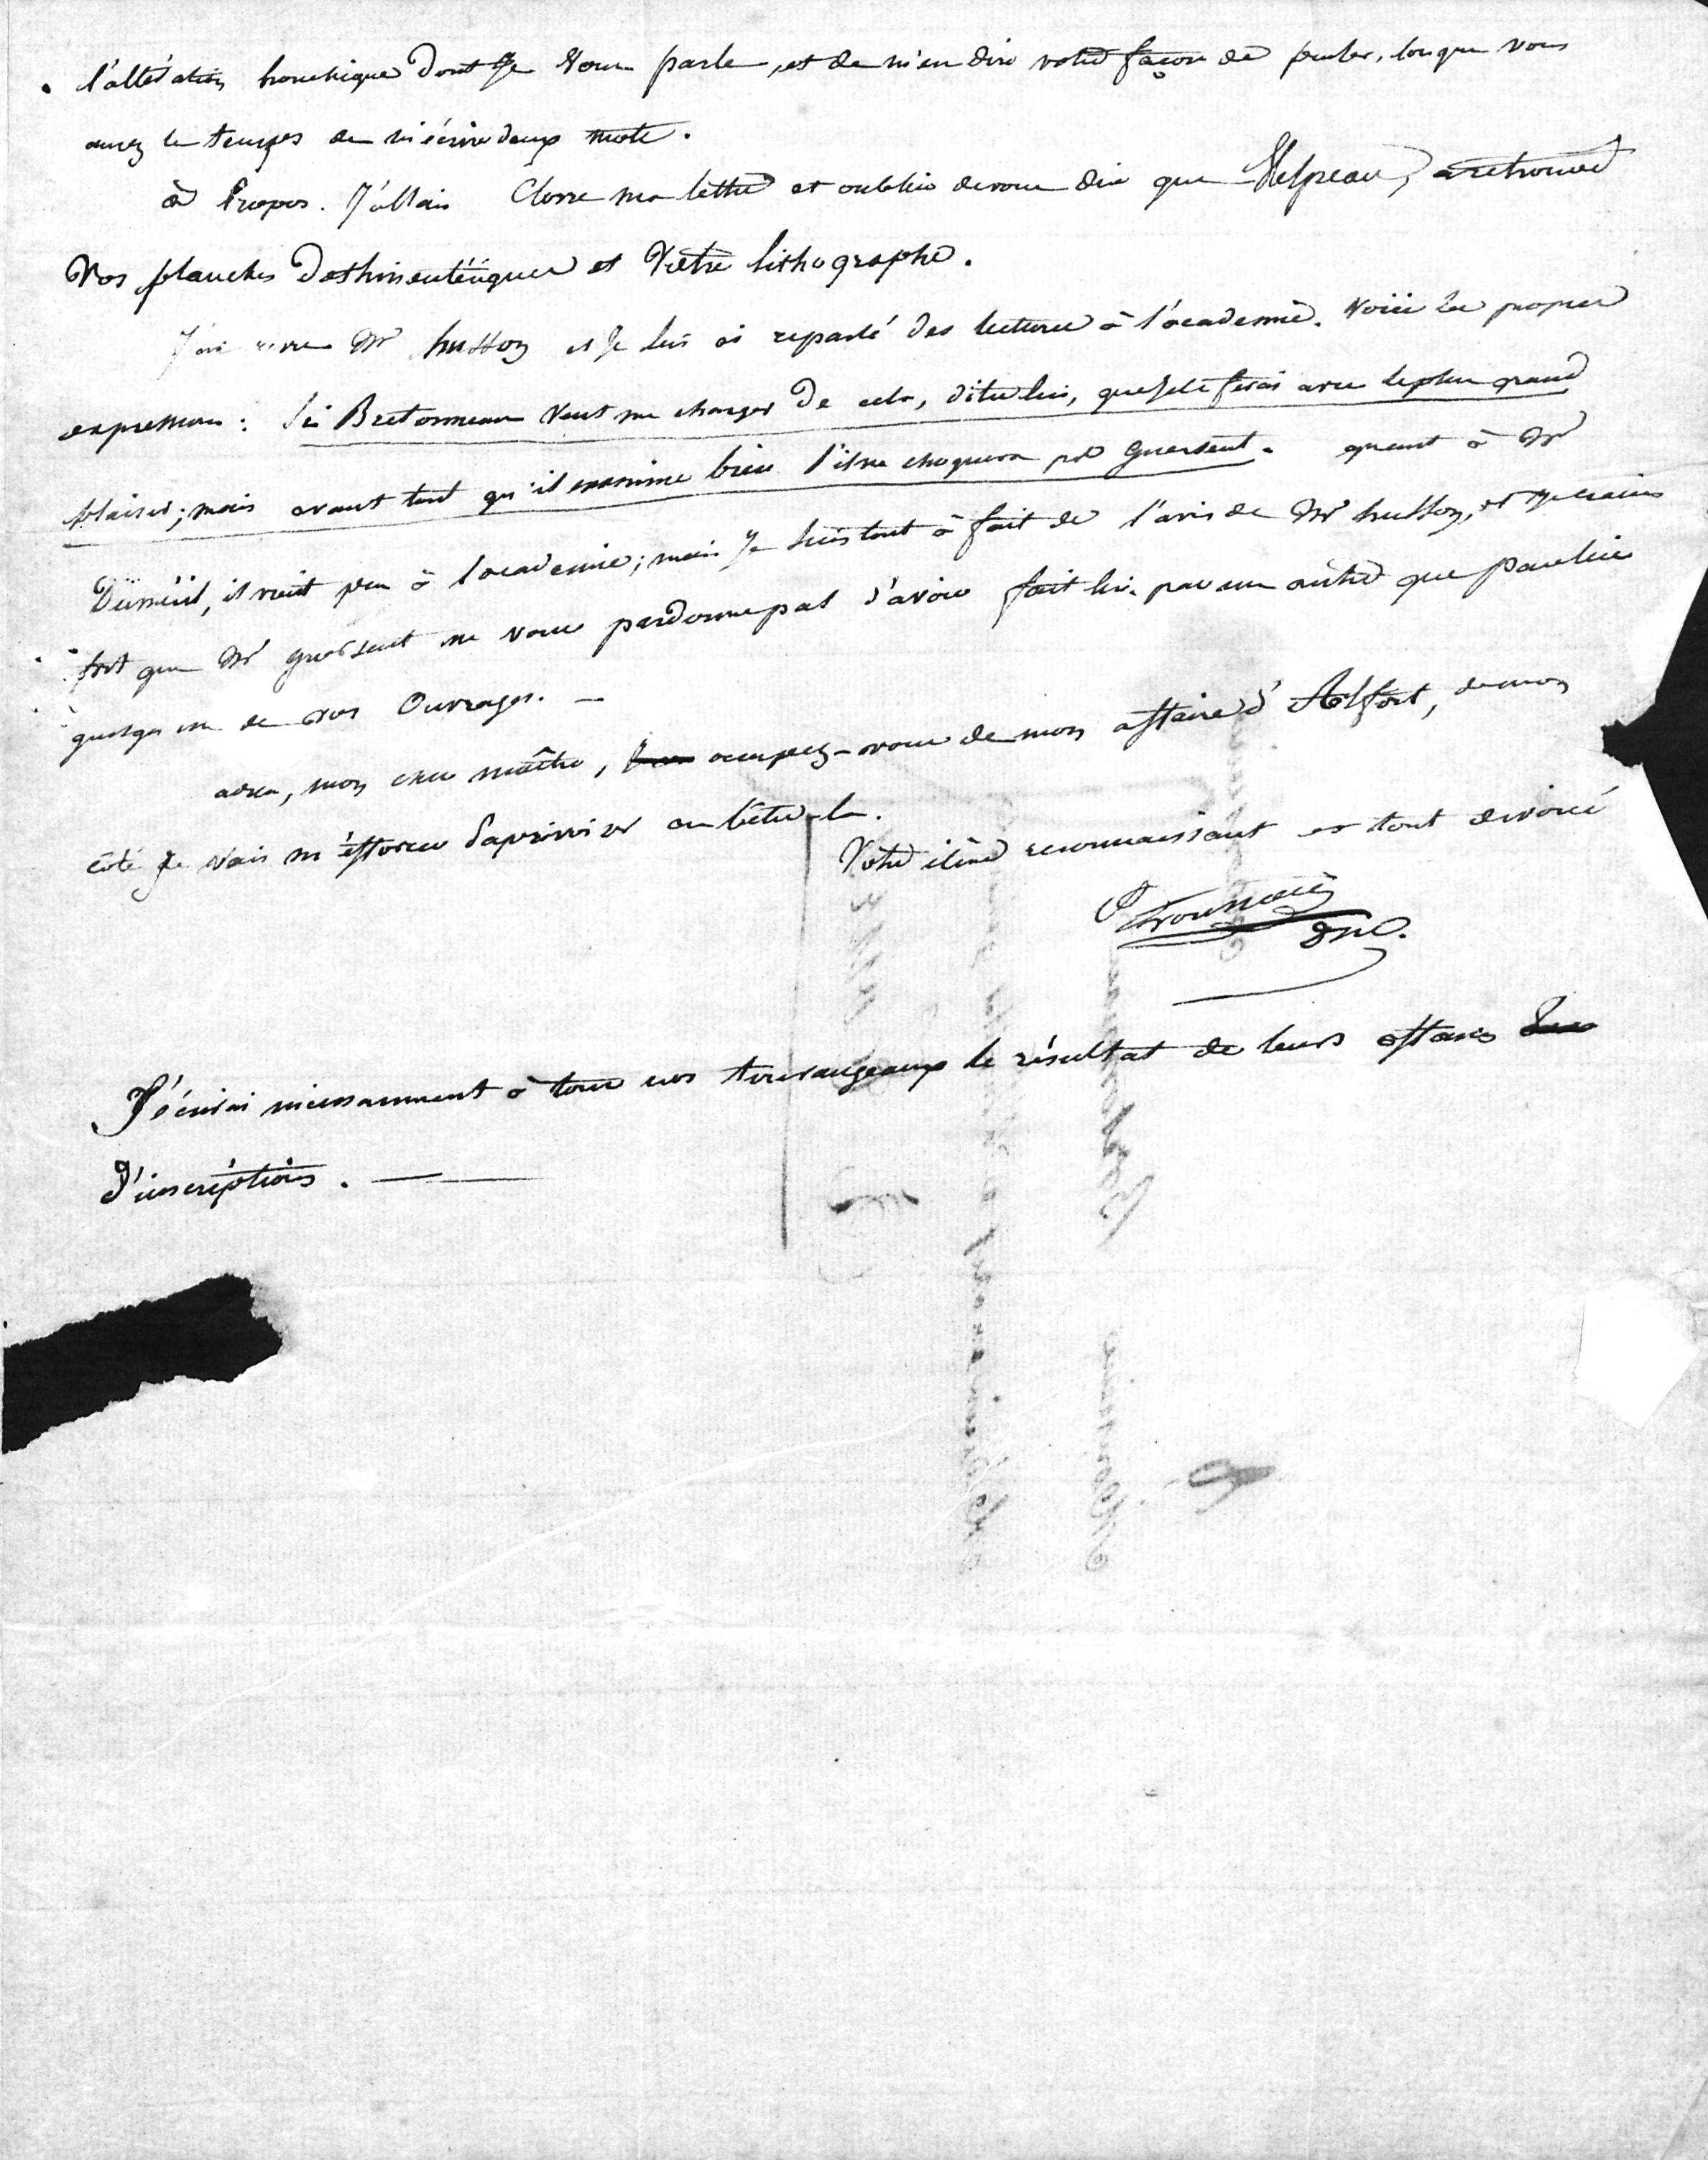 l'altération bronchique dont Je vous parle, et de m'en dire votre façon de penser, lorsque vous
aurez le temps de m'écrire deux mots.
à Propos. J'allais Clorre ma lettre et oublie de vous dire que Velpeau, a retrouvé
Vos planches Dothinentériques et Votre lithographe.
J'ai revu Mr husson et Je lui ai reparlé des lectures à l'académie. Voici sa propre
expression : Si Bretonneau veut me charger De cela, dites lui, que Je le ferai avec le plus grand
plaisir; mais avant tout qu'il examine bien s'il ne choquera pas Guersent. quant à Mr
Duméril, il vient peu à l'académie; mais Je suis tout à fait de l'avis de Mr husson, et Je crains
fort que Mr guersent ne vous pardonne pas d'avoir fait lire par un autre que par lui
quelqu'un de vos Ouvrages. —
adieu, mon cher maître, occupez-vous de mon affaire d'Alfort, de mon
côté Je vais m'éfforcer d'apprivoiser ces bêtes-la.
Votre élève reconnaissant et tout dévoué
Trousseau
DM.
J'écrirai incessamment à tous nos tourangeaux le résultat de leurs affaires
D'inscriptions. —